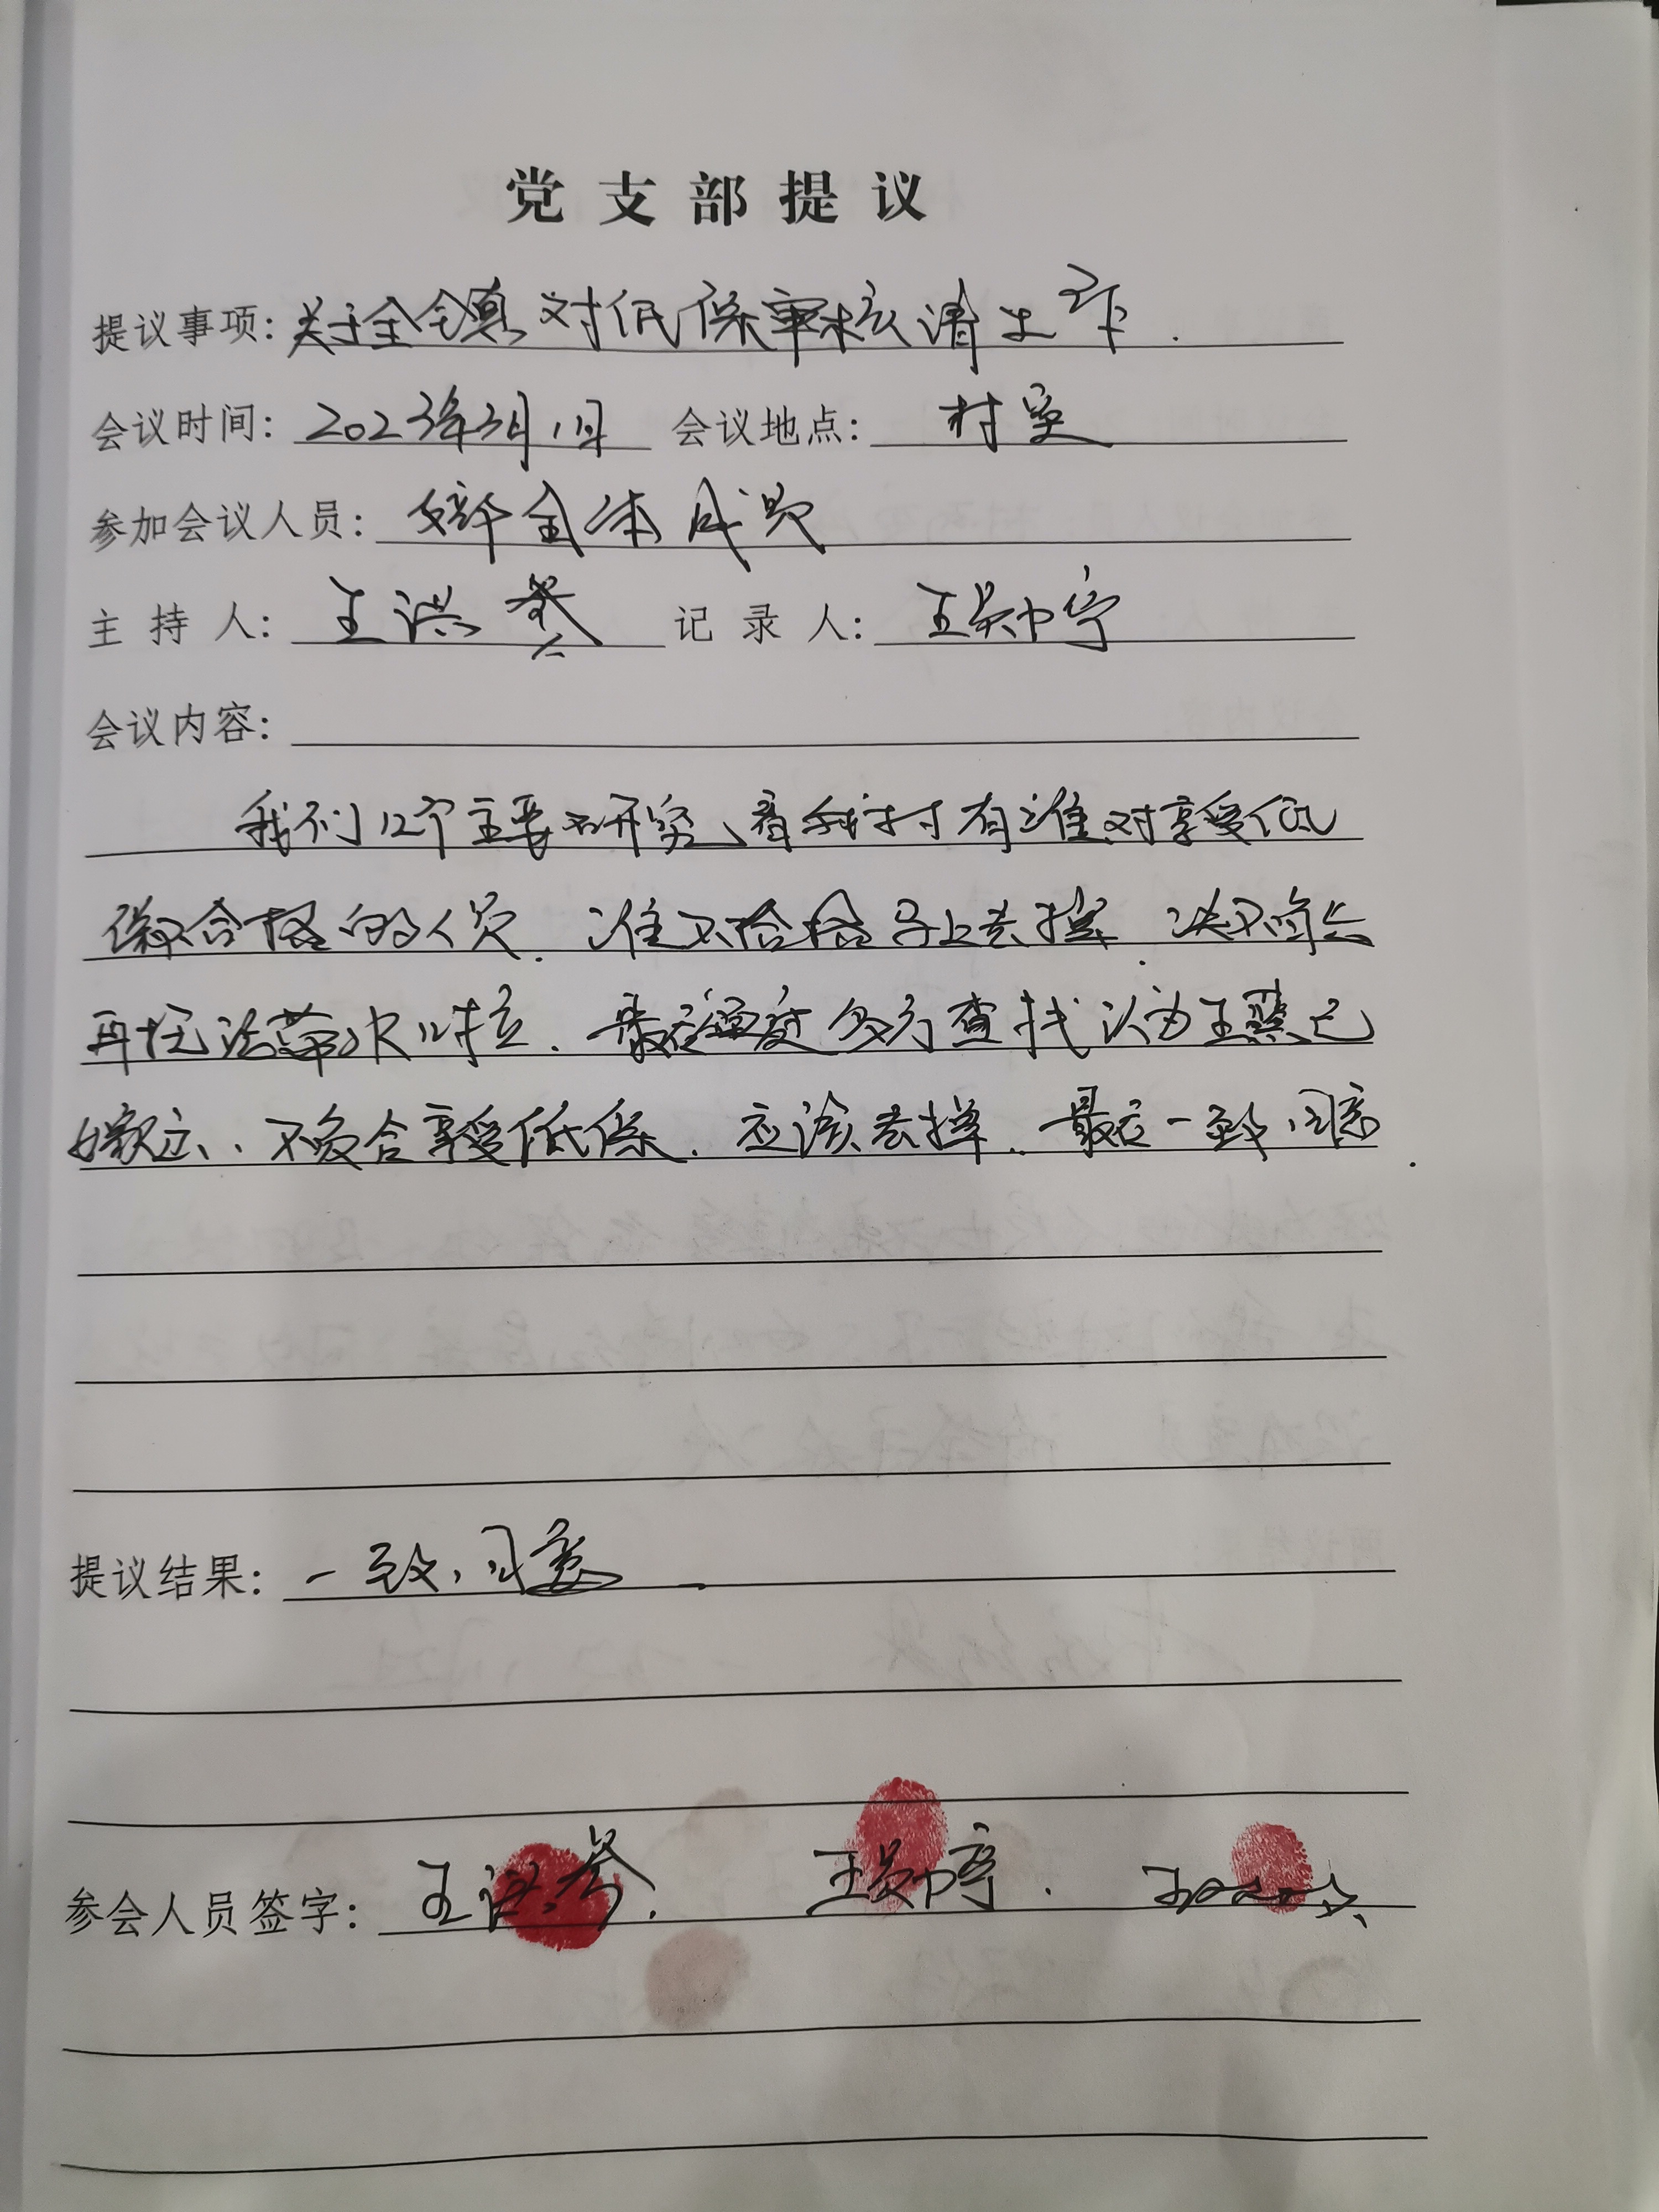 党支部提议
提议事项: 关于全镇对低保审核清工作.
会议时间: 2023年3月1日 会议地点: 村室
参加会议人员: 全体成员
主持人: 王洪 记录人: 王
会议内容:
我们这个主要研究,看我村有谁对享受低
保不合格的人员. 谁不合格马上去掉. 决不
再. 最后通过多方查找认为王翠已
嫁出, 不符合享受低保. 应该去掉. 最后一致同意.
提议结果: 一致同意
参会人员签字: 王洪 王